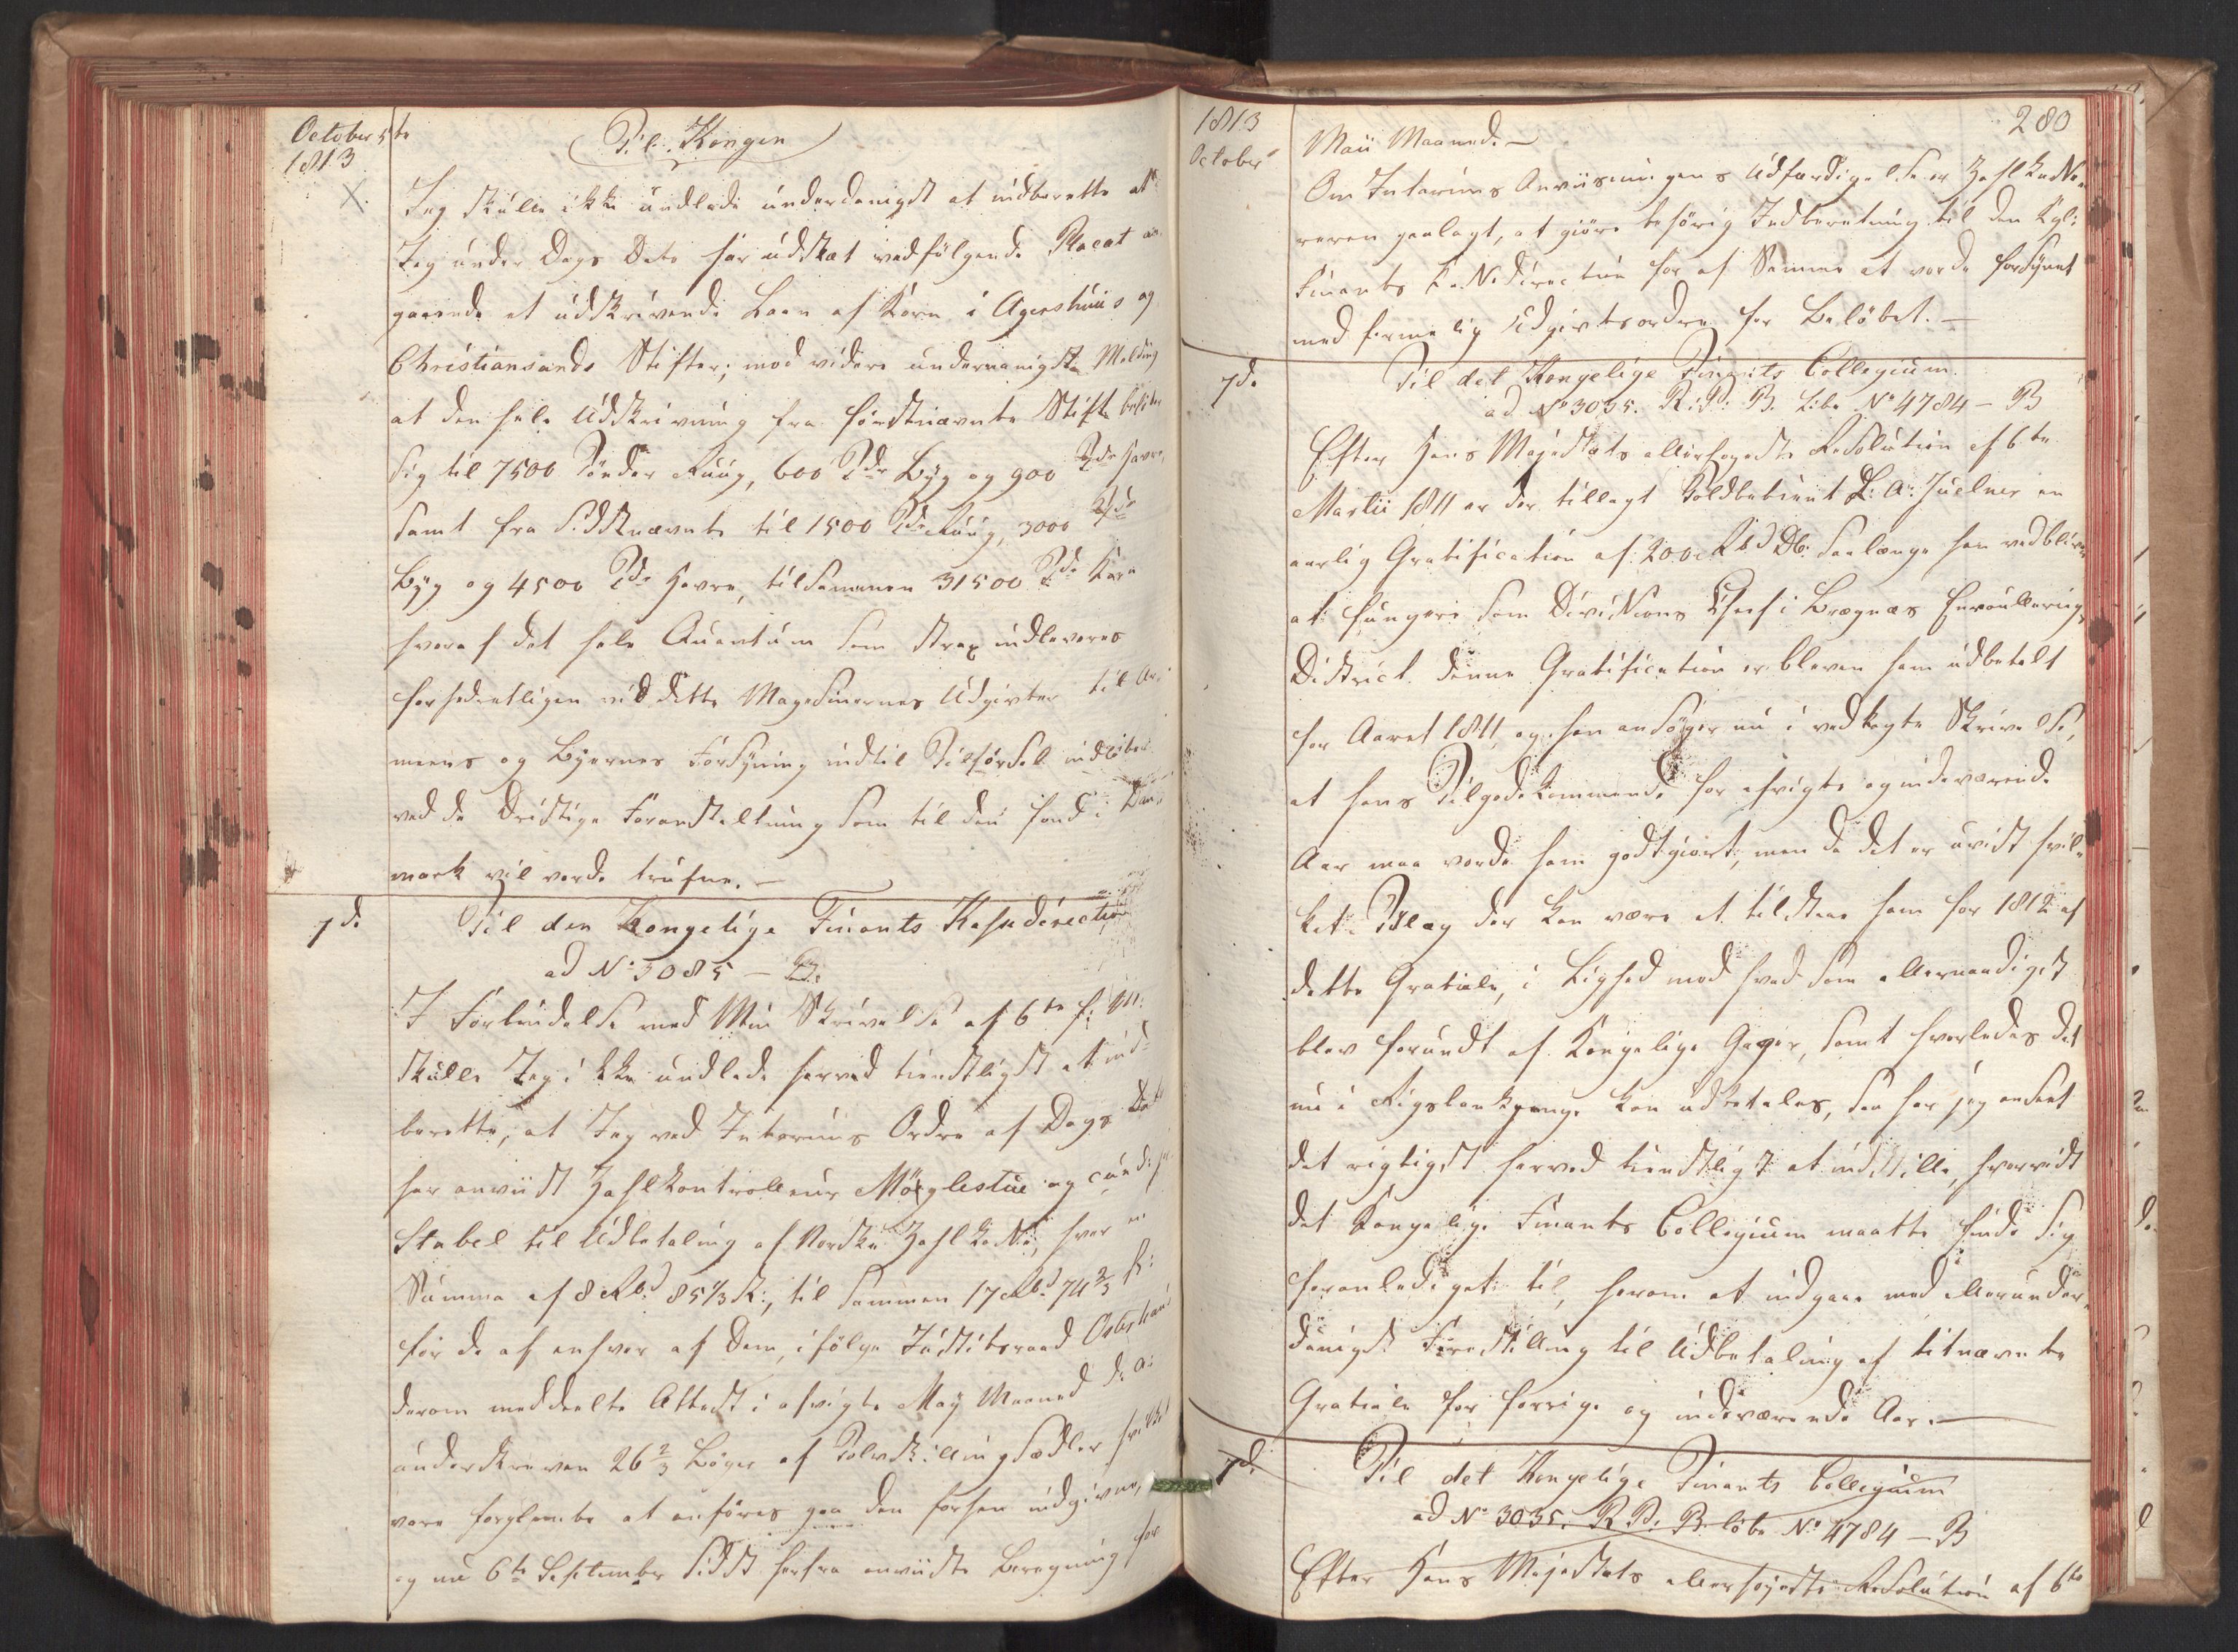 October 5te
1813
X.
Til Kongen
Jeg skulle ikke undlade underdanigst at indberette at
Jeg under Dags Dato har udstæt vedfølgende Placat an-
gaaende et udskrivende Laan af Korn i Agershuus og
Christiansands Stifter; med videre underdanigste Melding
at den hele Udskrivning fra förstnævnte Stift beløber
sig til 7500 Tönder Ruug, 600 Tdr Byg og 900 Tdr Havre,
samt fra sidstnævnte til 1500 Tdr Ruug, 3000 Tdr
Byg og 4500 Tdr Havre, tilsammen 31500 Tdr Korn
hvoraf det hele Quantum som strax indleveres
forhodentligen vil dette Magasinernes Udgivter til Ar-
meens og Byernes Forsyning indtil Tilförsel indtræffer
ved de Driftige Foranstaltning som til den Ende i Dan-
mark vil vorde trufne. –
7de
Til den Kongelige Finants Kassedirection
ad No 3085 – B.
I Forbindelse med Min Skrivelse af 6te f: M:
skulle Jeg ikke undlade herved tienstligst at ind-
berette, at Jeg ved Interims Ordre af Dags Dato
har anviist Zahlkontrolleur Möglestue og
Stabel til Udbetaling af Norske Zahlkasse, hver en
Summa af 8 Rbd 85 1/3 s:, til sammen 17 Rbd 74 2/3 s:
for de af enhver af Dem, ifölge Justitsraad
derom meddeelte Attest i afvigte May Maaned d: A:
underskreven 26 2/3 Böger af Tolvskillingsedler hvilke
vare forglemte at anföres paa den forhen indgivne,
og nu 6te September sidst herfra anviiste Beregning for
1813
October
280
Maii Maaned. –
Om Interims Anviisningens Udfærdigelse er Zahlkasse-
reren paalagt, at giöre behörig Indberetning til den Kgl:
Finants Cassedirection for af Samme at vorde forsynet
med formelig Udgivtsordre for Belöbet. –
7de
Til det Kongelige Finants Collegium.
ad No 3035. R: P: B. Libr No 4784 – B
Efter Hans Majestæts allerhøyeste Resolution af 6te
Martii 1811 er der tillagt Toldbetient L: A: Juelner en
aarlig Gratification af 200 Rbd DC: saalænge han vedbliver
at fungere som Divisions Chef i Bragnæs Enroullerings
District. Denne Gratification er bleven ham udbetalt
for Aaret 1811, og han ansöger nu i vedlagte Skrivelse,
at hans Tilgodekommende for afvigte og indeværende
Aar maa vorde ham godtgiort, men da det er uvist hvil-
ket Tillæg der kan være at tilstaae ham for 1812 af
dette Gratiale, i Lighed med hvad som allernaadigst
blev forundt af Kongelige Gager, samt hvorledes det
nu i Rigsbankpenge kan udbetales, saa har jeg anseet
det rigtigst herved tienstligst at indstille, hvorvidt
det Kongelige Finants Collegium maatte finde sig
foranlediget til, herom at indgaae med allerunder-
danigst Forestilling til Udbetaling af bemeldte
Gratiale for forrige og indeværende Aar. –
7de
Til det Kongelige Finants Collegium
ad No 3035. R. P. B. Libr No 4784 – B
Efter Hans Majestæts allerhøyeste Resolution af 6te